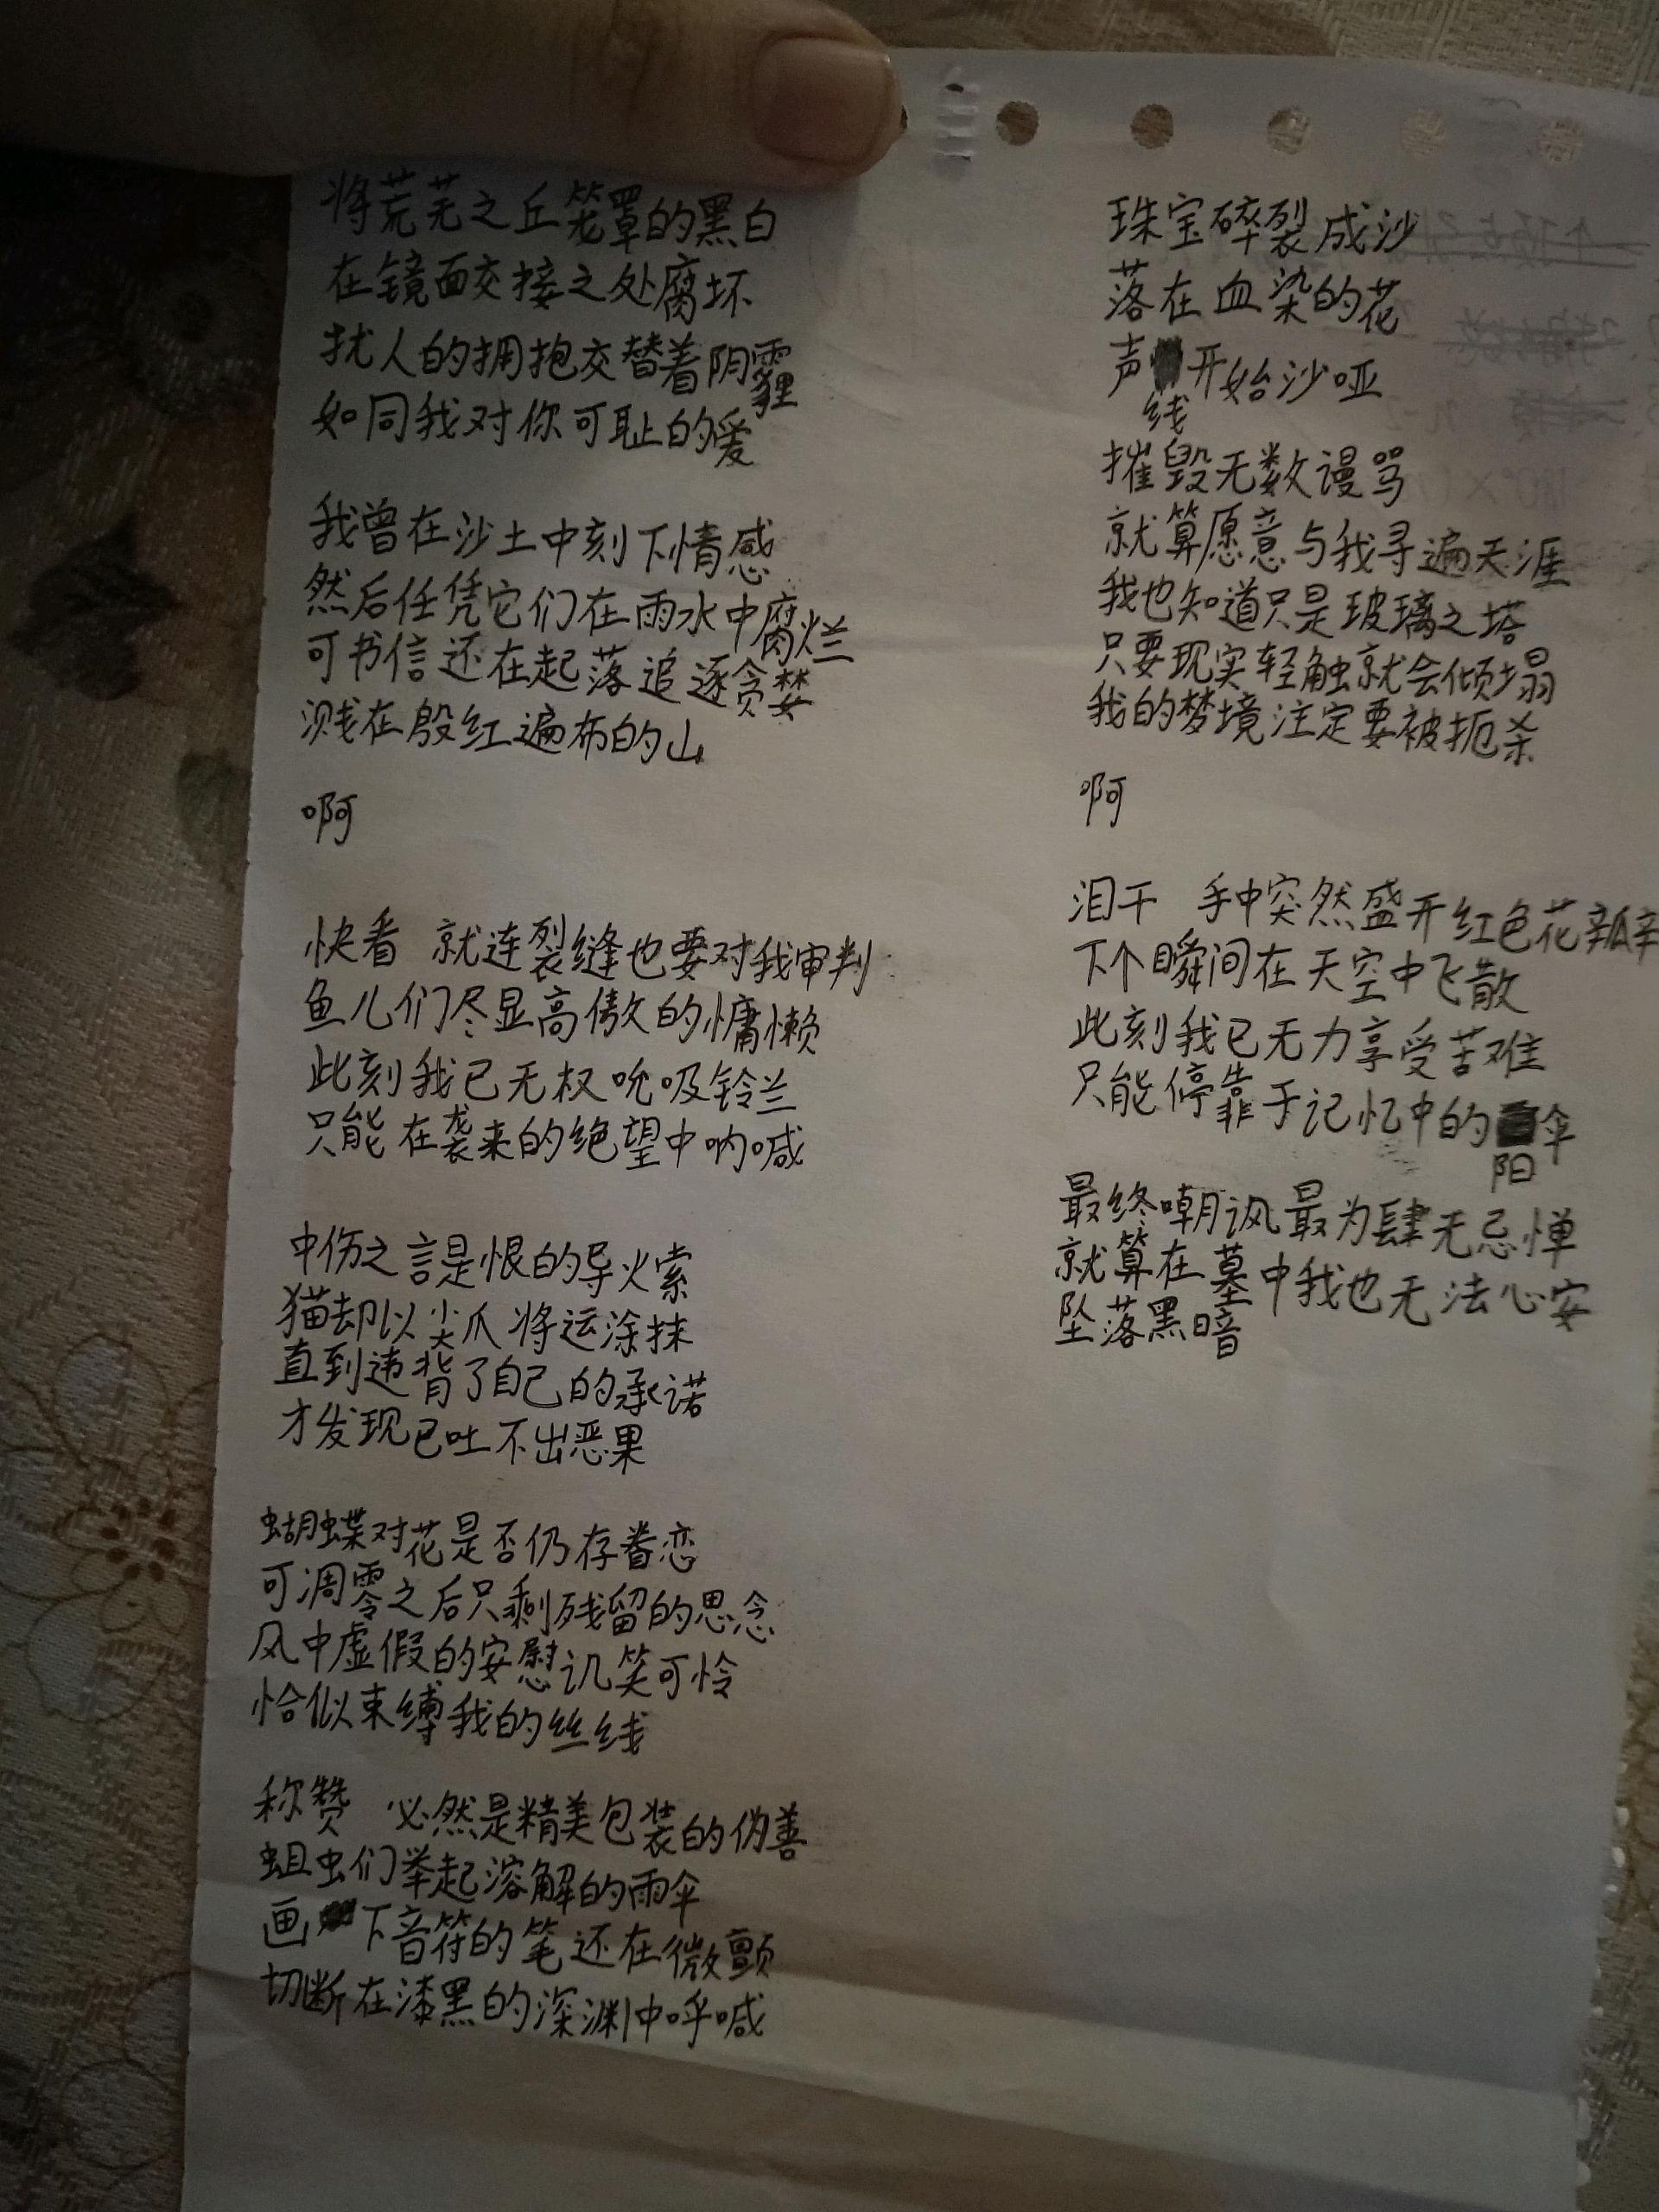 将荒芜之丘笼罩的黑白
在镜面交接之处腐坏
扰人的拥抱交替着阴霾
如同我对你可耻的爱
我曾在沙土中刻下情感
然后任凭它们在雨水中腐烂
可书信还在起落追逐贪婪
溅在殷红遍布的山
啊
快看 就连裂缝也要对我审判
鱼儿们尽显高傲的慵懒
此刻我已无权吮吸铃兰
只能在袭来的绝望中呐喊
中伤之言是恨的导火索
猫却以尖爪将运涂抹
直到违背了自己的承诺
才发现已吐不出恶果
蝴蝶对花是否仍存眷恋
可凋零之后只剩残留的思念
风中虚假的安慰讥笑可怜
恰似束缚我的丝线
称赞 必然是精美包装的伪善
蛆虫们举起溶解的雨伞
画下音符的笔还在微颤
切断在漆黑的深渊中呼喊
珠宝碎裂成沙
落在血染的花
声线开始沙哑
摧毁无数谩骂
就算愿意与我寻遍天涯
我也知道只是玻璃之塔
只要现实轻触就会倾塌
我的梦境注定要被扼杀
啊
泪干 手中突然盛开红色花瓣
下个瞬间在天空中飞散
此刻我已无力享受苦难
只能停靠于记忆中的阳伞
最终嘲讽最为肆无忌惮
就算在墓中我也无法心安
坠落黑暗